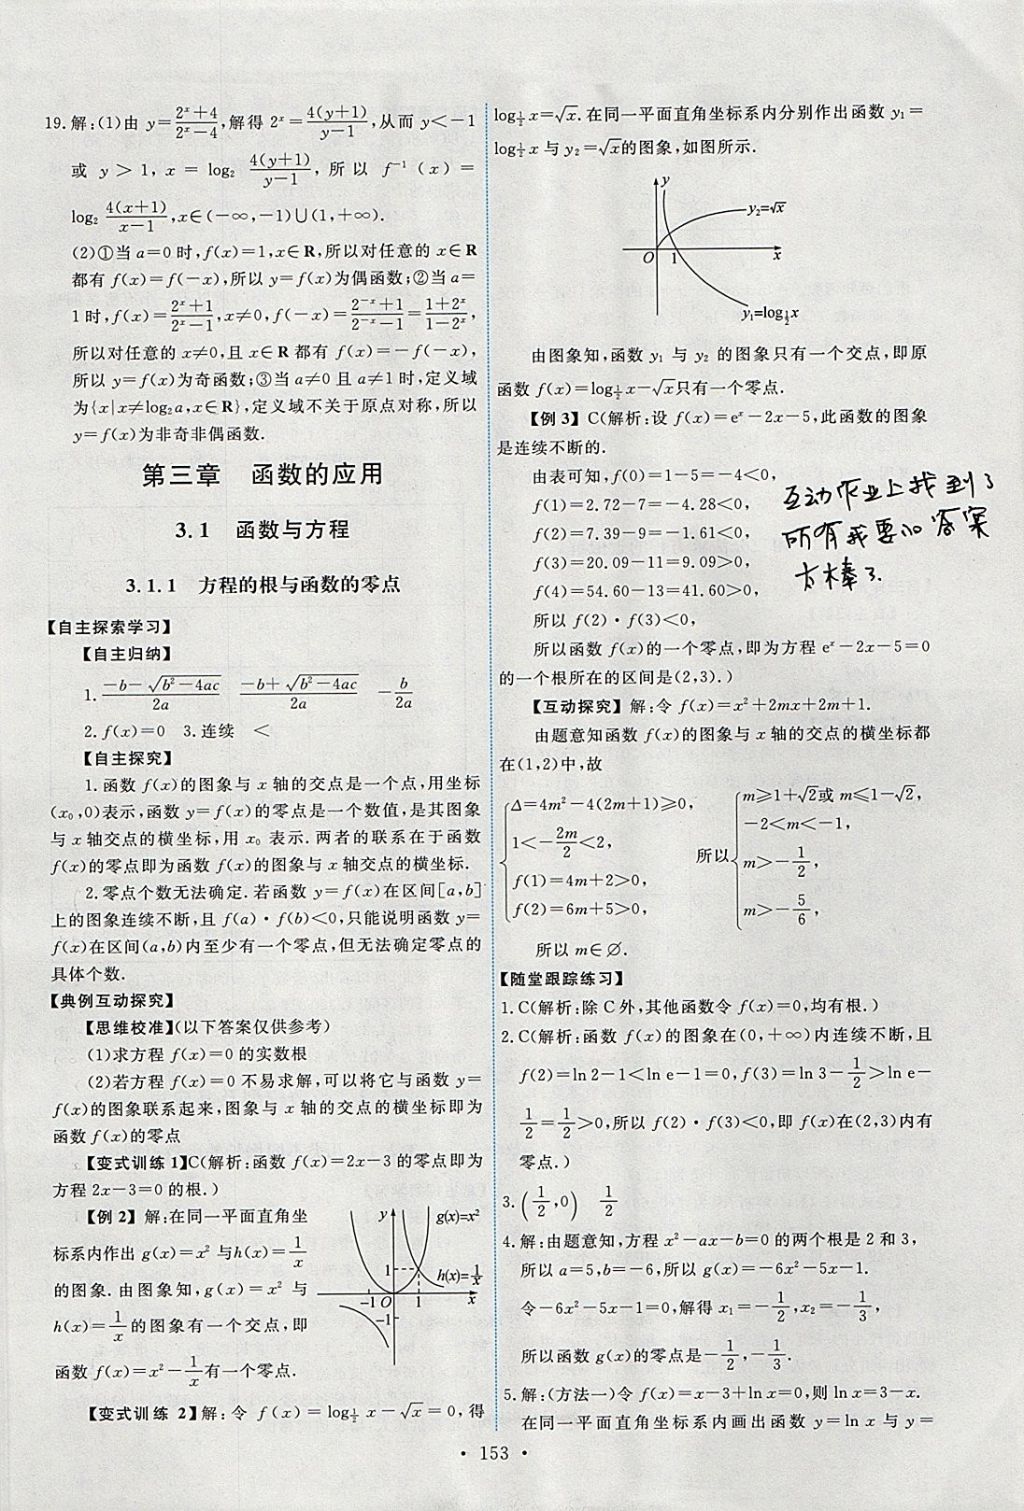 19.解:(1)由 y=\frac{2^x+4}{2^x-4},解得 2^x=\frac{4(y+1)}{y-1},从而 y<-1
或 y>1, x=log_2 \frac{4(y+1)}{y-1}, 所以 f^{-1}(x)=
log_2 \frac{4(x+1)}{x-1},x∈(-∞,-1)∪(1,+∞).
(2)①当 a=0 时,f(x)=1,x∈R,所以对任意的 x∈R
都有 f(x)=f(-x),所以 y=f(x)为偶函数;②当 a=
1时,f(x)=\frac{2^x+1}{2^x-1},x≠0,f(-x)=\frac{2^{-x}+1}{2^{-x}-1}=\frac{1+2^x}{1-2^x},
所以对任意的 x≠0,且 x∈R 都有 f(x)=-f(-x),
所以 y=f(x)为奇函数;③当 a≠0 且 a≠1 时,定义域
为{x|x≠log_2 a,x∈R},定义域不关于原点对称,所以
y=f(x)为非奇非偶函数.
第三章 函数的应用
3.1 函数与方程
3.1.1 方程的根与函数的零点
【自主探索学习】
【自主归纳】
1. \frac{-b-\sqrt{b^2-4ac}}{2a} \frac{-b+\sqrt{b^2-4ac}}{2a} -\frac{b}{2a}
2.f(x)=0 3.连续 <
【自主探究】
1.函数 f(x)的图象与 x 轴的交点是一个点,用坐标
(x_0,0)表示,函数 y=f(x)的零点是一个数值,是其图象
与 x 轴交点的横坐标,用 x_0 表示.两者的联系在于函数
f(x)的零点即为函数 f(x)的图象与 x 轴交点的横坐标.
2.零点个数无法确定.若函数 y=f(x)在区间[a,b]
上的图象连续不断,且 f(a)·f(b)<0,只能说明函数 y=
f(x)在区间(a,b)内至少有一个零点,但无法确定零点的
具体个数.
【典例互动探究】
【思维校准】(以下答案仅供参考)
(1)求方程 f(x)=0 的实数根
(2)若方程 f(x)=0 不易求解,可以将它与函数 y=
f(x)的图象联系起来,图象与 x 轴的交点的横坐标即为
函数 f(x)的零点
【变式训练 1】C(解析:函数 f(x)=2x-3 的零点即为
方程 2x-3=0 的根.)
【例 2】 解:在同一平面直角坐
标系内作出 g(x)=x^2 与h(x)=\frac{1}{x}
的图象.由图象知,g(x)=x^2 与
h(x)=\frac{1}{x}的图象有一个交点,即
函数 f(x)=x^2-\frac{1}{x}有一个零点.
y g(x)=x^2
1 h(x)=\frac{1}{x}
-1 O 1 x
-1
【变式训练 2】解:令 f(x)=log_{\frac{1}{2}} x-\sqrt{x}=0,得
log_{\frac{1}{2}} x=\sqrt{x}.在同一平面直角坐标系内分别作出函数 y_1=
log_{\frac{1}{2}} x 与 y_2=\sqrt{x}的图象,如图所示.
y
y_2=\sqrt{x}
O 1 x
y_1=log_{\frac{1}{2}} x
由图象知,函数 y_1 与 y_2 的图象只有一个交点,即原
函数 f(x)=log_{\frac{1}{2}} x-\sqrt{x}只有一个零点.
【例 3】 C(解析:设 f(x)=e^x-2x-5,此函数的图象
是连续不断的.
由表可知,f(0)=1-5=-4<0,
f(1)=2.72-7=-4.28<0,
f(2)=7.39-9=-1.61<0,
f(3)=20.09-11=9.09>0,
f(4)=54.60-13=41.60>0,
所以 f(2)·f(3)<0,
所以函数 f(x)的一个零点,即为方程 e^x-2x-5=0
的一个根所在的区间是(2,3).)
互动作业上找到了
所有我要的答案
太棒了.
【互动探究】 解:令 f(x)=x^2+2mx+2m+1.
由题意知函数 f(x)的图象与 x 轴的交点的横坐标都
在(1,2)中,故
Δ=4m^2-4(2m+1)≥0,
1<-\frac{2m}{2}<2,
f(1)=4m+2>0,
f(2)=6m+5>0,
所以
m≥1+\sqrt{2}或 m≤1-\sqrt{2},
-2<m<-1,
m>-\frac{1}{2},
m>-\frac{5}{6},
所以 m∈∅.
【随堂跟踪练习】
1.C(解析:除 C 外,其他函数令 f(x)=0,均有根.)
2.C(解析:函数 f(x)的图象在(0,+∞)内连续不断,且
f(2)=ln 2-1<ln e-1=0,f(3)=ln 3-\frac{1}{2}>ln e-
\frac{1}{2}=\frac{1}{2}>0,所以 f(2)·f(3)<0,即 f(x)在(2,3)内有
零点.)
3.(\frac{1}{2},0) \frac{1}{2}
4.解:由题意知,方程 x^2-ax-b=0 的两个根是 2 和 3,
所以 a=5,b=-6,所以 g(x)=-6x^2-5x-1.
令-6x^2-5x-1=0,解得 x_1=-\frac{1}{2},x_2=-\frac{1}{3},
所以函数 g(x)的零点是-\frac{1}{2},-\frac{1}{3}.
5.解:(方法一)令 f(x)=x-3+ln x=0,则 ln x=3-x.
在同一平面直角坐标系内画出函数 y=ln x 与 y=
· 153 ·